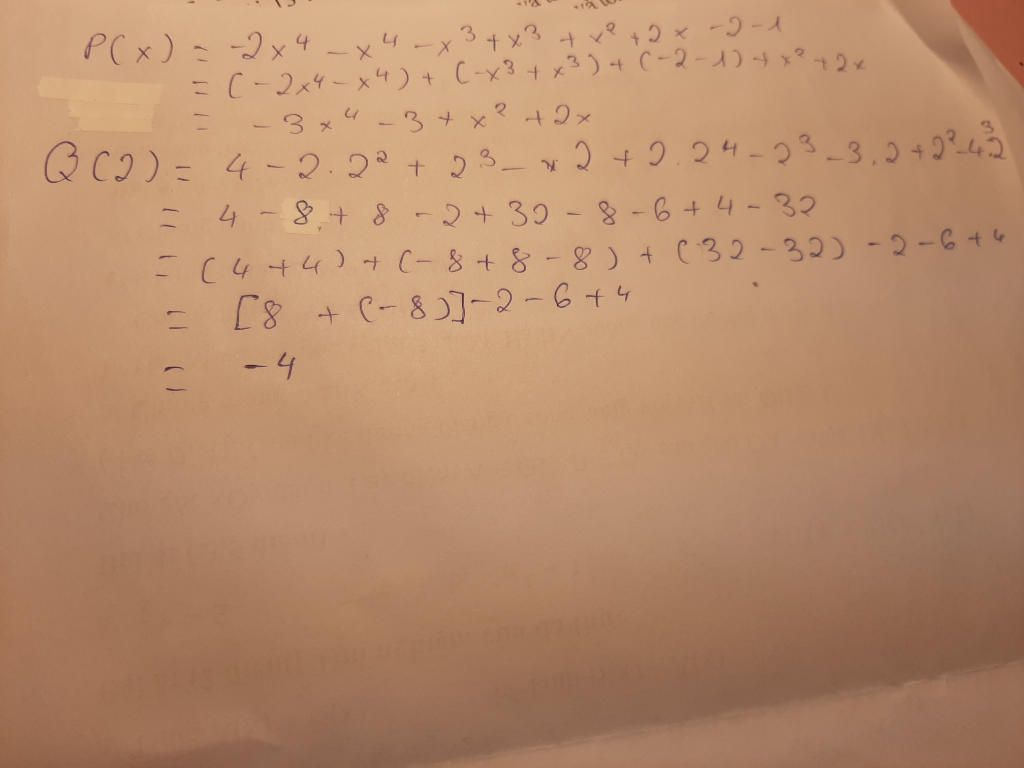 P(x) = -2x⁴ - x⁴ - x³ + x³ + x² + 2x - 2 - 1
= (-2x⁴ - x⁴) + (-x³ + x³) + (-2 - 1) + x² + 2x
= -3x⁴ - 3 + x² + 2x
Q(2) = 4 - 2.2² + 2³ - 2 + 2.2⁴ - 2³ - 3.2 + 2² - 4.2³
= 4 - 8 + 8 - 2 + 32 - 8 - 6 + 4 - 32
= (4 + 4) + (-8 + 8 - 8) + (32 - 32) - 2 - 6 + 4
= [8 + (-8)] - 2 - 6 + 4
= -4